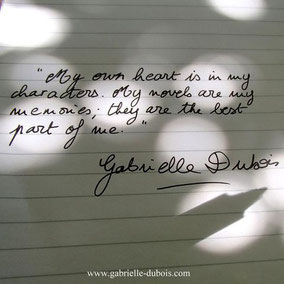 "My own heart is in my
characters. My novels are my
memories; they are the best
part of me."
Gabrielle Dubois
www.gabrielle-dubois.com